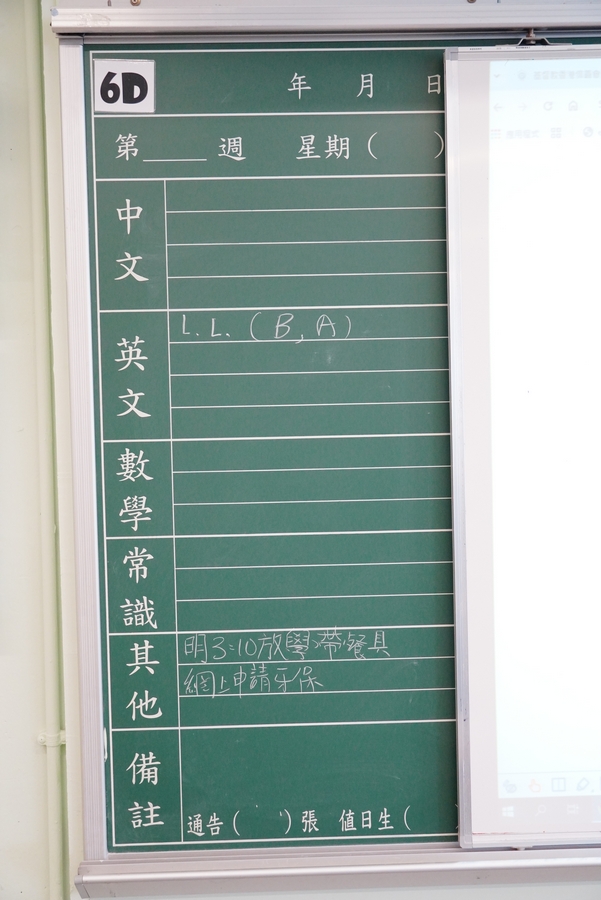 6D
年 月 日
第____週 星期( )
中文
英文
L.L. (B, A)
數學
常識
其他
明3:10放學,帶餐具
網上申請牙保
備註
通告( )張 值日生(